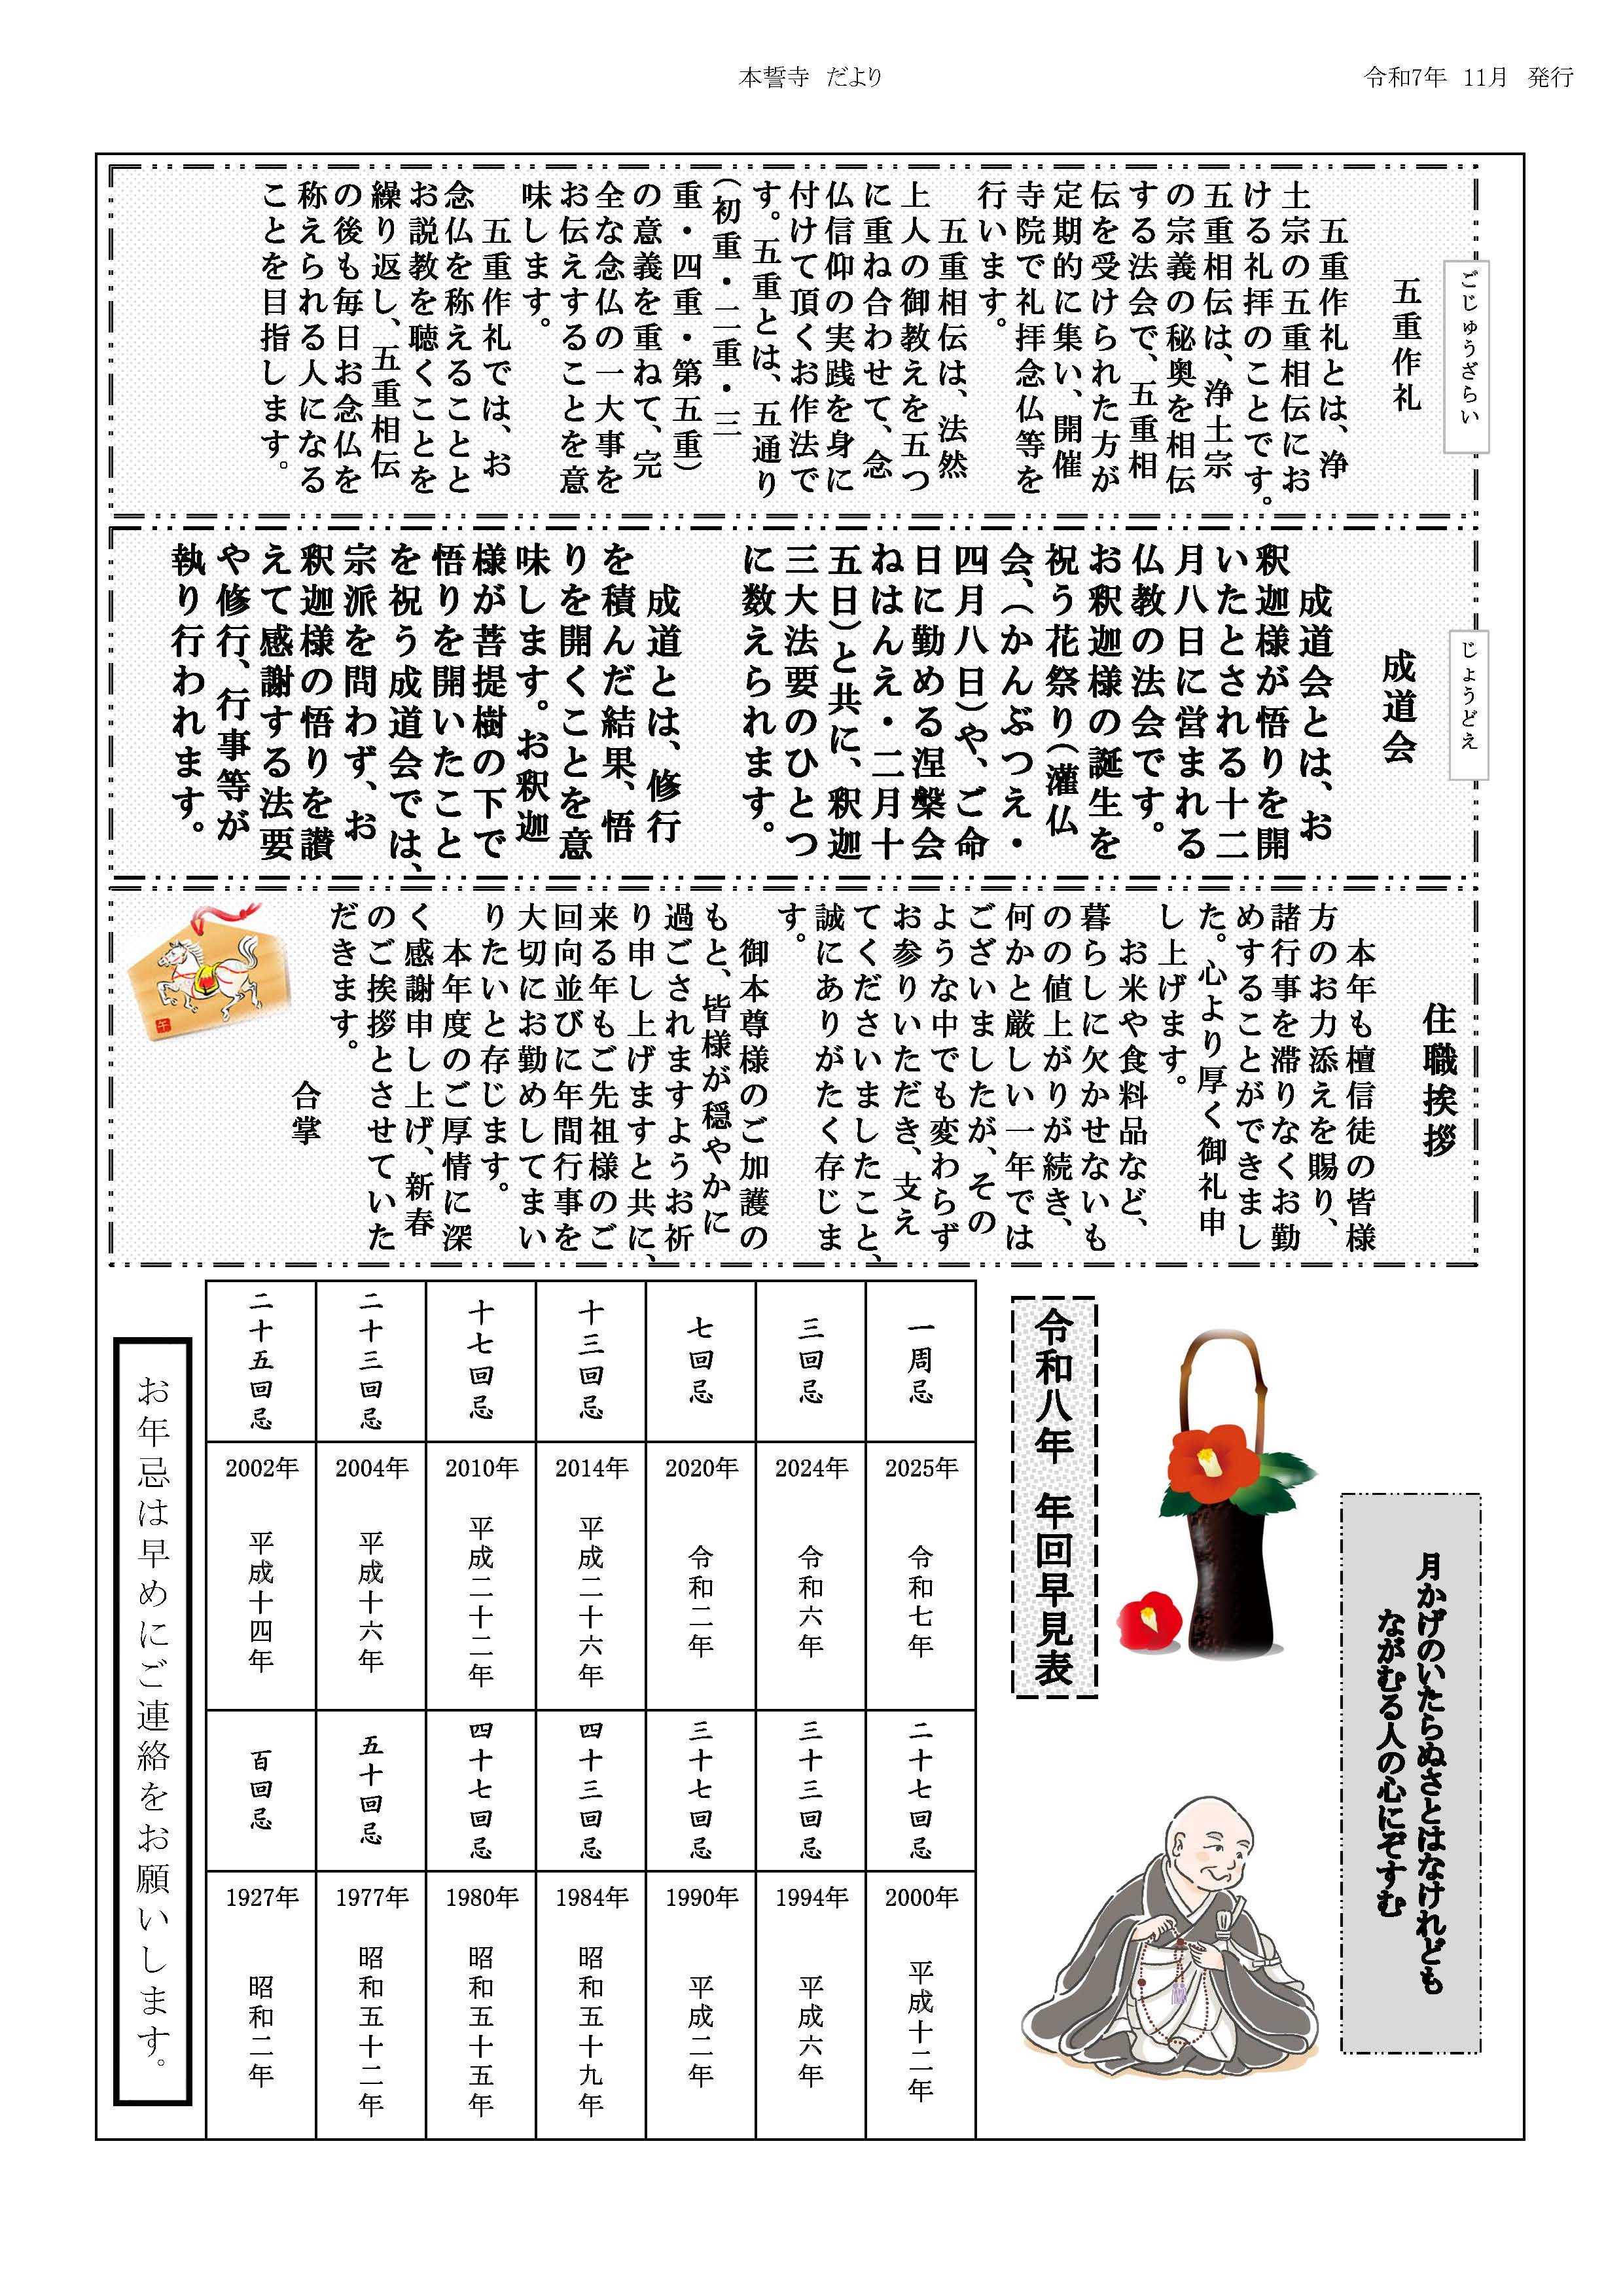 本誓寺　だより
令和7年　11月　発行
ごじゅうざらい
五重作礼
　五重作礼とは、浄
土宗の五重相伝にお
ける礼拝のことです。
五重相伝は、浄土宗
の宗義の秘奥を相伝
する法会で、五重相
伝を受けられた方が
定期的に集い、開催
寺院で礼拝念仏等を
行います。
　五重相伝は、法然
上人の御教えを五つ
に重ね合わせて、念
仏信仰の実践を身に
付けて頂くお作法で
す。五重とは、五通り
（初重・二重・三
重・四重・第五重）
の意義を重ねて、完
全な念仏の一大事を
お伝えすることを意
味します。
　五重作礼では、お
念仏を称えることと
お説教を聴くことを
繰り返し、五重相伝
の後も毎日お念仏を
称えられる人になる
ことを目指します。
じょうどえ
成道会
　成道会とは、お
釈迦様が悟りを開
いたとされる十二
月八日に営まれる
仏教の法会です。
お釈迦様の誕生を
祝う花祭り（灌仏
会、（かんぶつえ・
四月八日）や、ご命
日に勤める涅槃会
ねはんえ・二月十
五日）と共に、釈迦
三大法要のひとつ
に数えられます。
　成道とは、修行
を積んだ結果、悟
りを開くことを意
味します。お釈迦
様が菩提樹の下で
悟りを開いたこと
を祝う成道会では、
宗派を問わず、お
釈迦様の悟りを讃
えて感謝する法要
や修行、行事等が
執り行われます。
住職挨拶
　本年も檀信徒の皆様
方のお力添えを賜り、
諸行事を滞りなくお勤
めすることができまし
た。心より厚く御礼申
し上げます。
　お米や食料品など、
暮らしに欠かせないも
のの値上がりが続き、
何かと厳しい一年では
ございましたが、その
ような中でも変わらず
お参りいただき、支え
てくださいましたこと、
誠にありがたく存じま
す。
　御本尊様のご加護の
もと、皆様が穏やかに
過ごされますようお祈
り申し上げますと共に、
来る年もご先祖様のご
回向並びに年間行事を
大切にお勤めしてまい
りたいと存じます。
　本年度のご厚情に深
く感謝申し上げ、新春
のご挨拶とさせていた
だきます。
合掌
午
月かげのいたらぬさとはなけれども
ながむる人の心にぞすむ
令和八年　年回早見表
一周忌
2025年
令和七年
三回忌
2024年
令和六年
七回忌
2020年
令和二年
十三回忌
2014年
平成二十六年
十七回忌
2010年
平成二十二年
二十三回忌
2004年
平成十六年
二十五回忌
2002年
平成十四年
二十七回忌
2000年
平成十二年
三十三回忌
1994年
平成六年
三十七回忌
1990年
平成二年
四十三回忌
1984年
昭和五十九年
四十七回忌
1980年
昭和五十五年
五十回忌
1977年
昭和五十二年
百回忌
1927年
昭和二年
お年忌は早めにご連絡をお願いします。